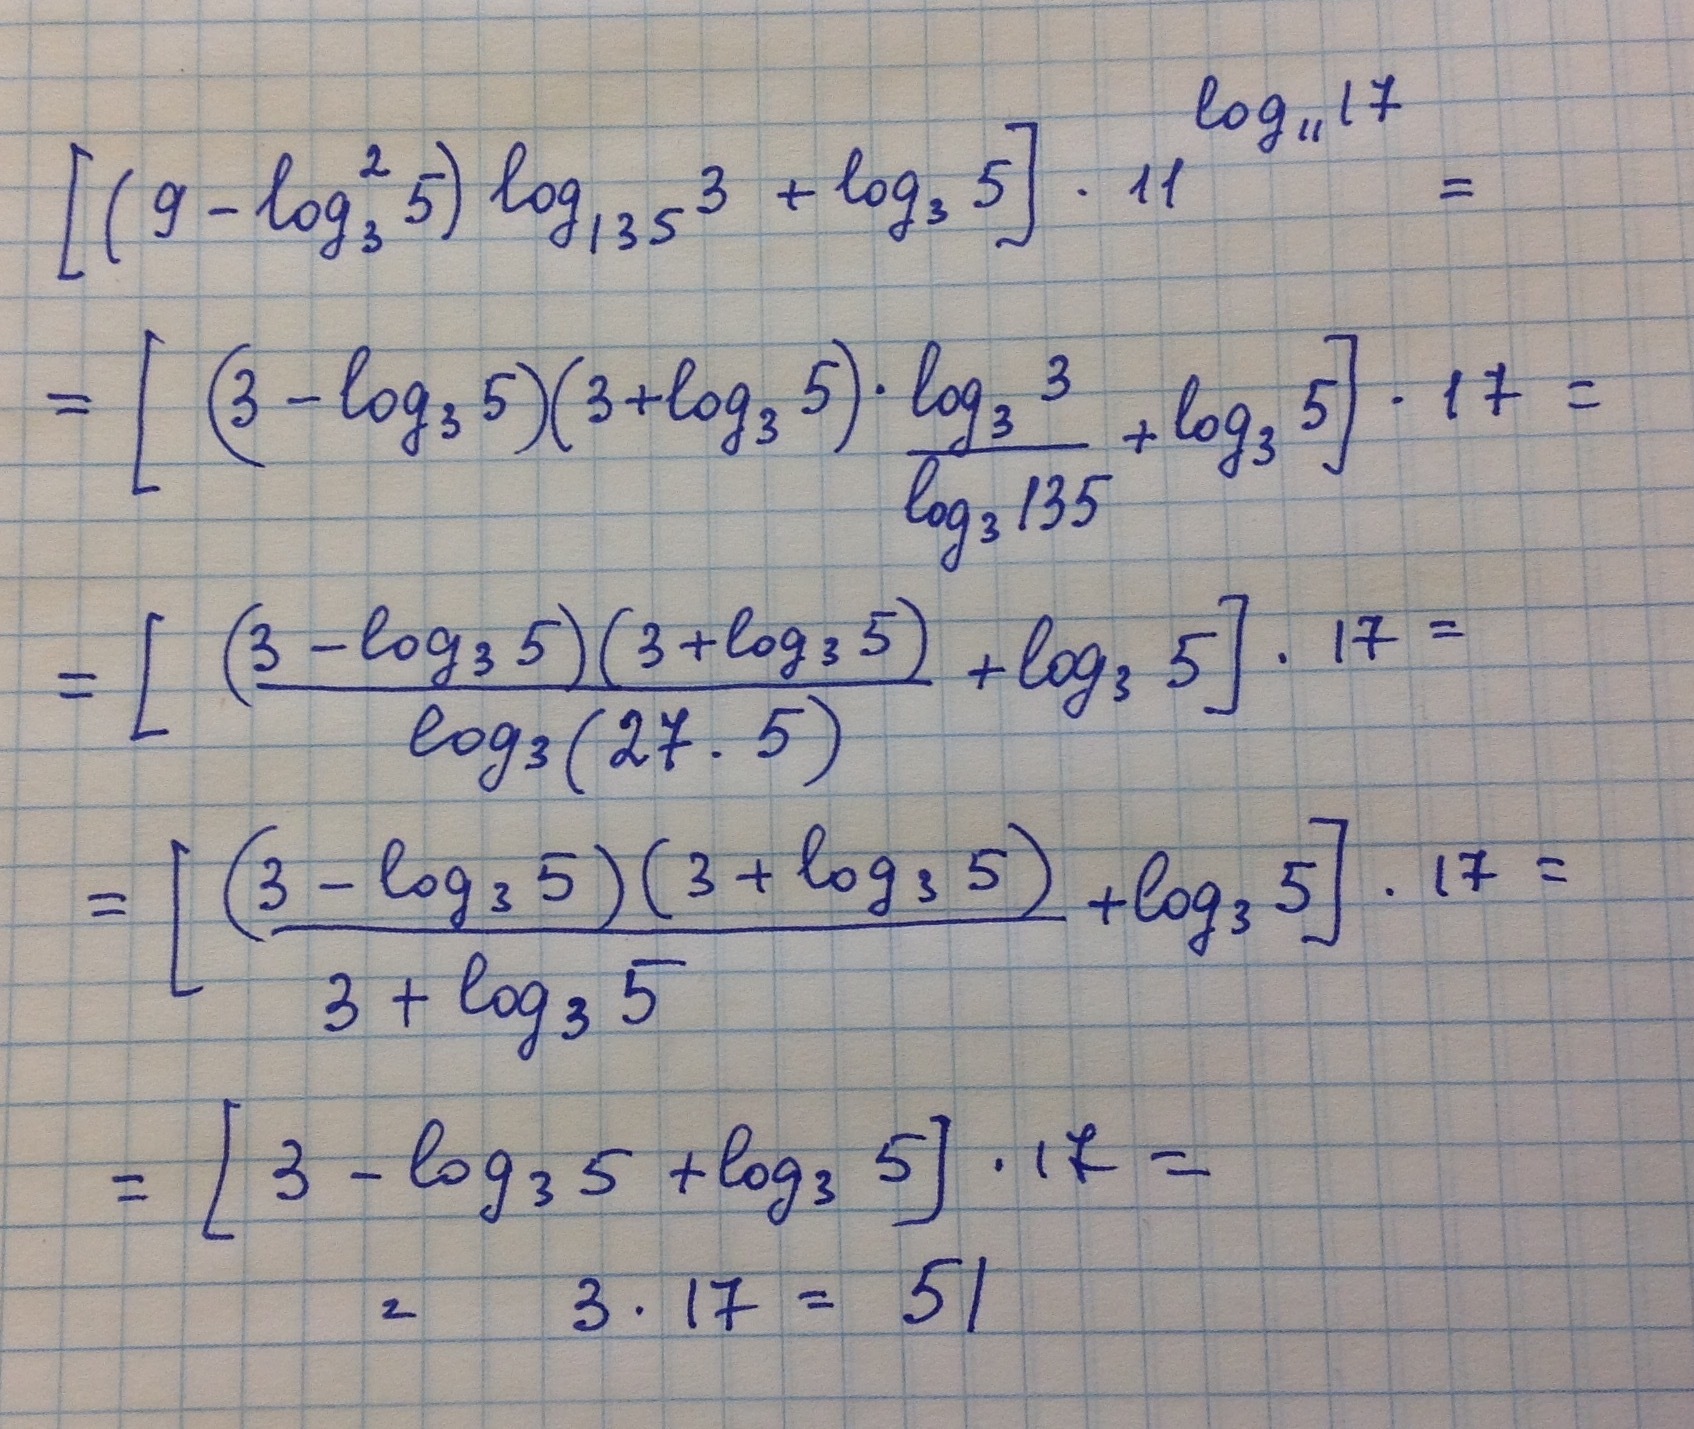 [(9 - log₃² 5) log₁₃₅ 3 + log₃ 5] · 11^(log₁₁ 17) =
= [(3 - log₃ 5)(3 + log₃ 5) · (log₃ 3)/(log₃ 135) + log₃ 5] · 17 =
= [((3 - log₃ 5)(3 + log₃ 5))/(log₃ (27 · 5)) + log₃ 5] · 17 =
= [((3 - log₃ 5)(3 + log₃ 5))/(3 + log₃ 5) + log₃ 5] · 17 =
= [3 - log₃ 5 + log₃ 5] · 17 =
= 3 · 17 = 51